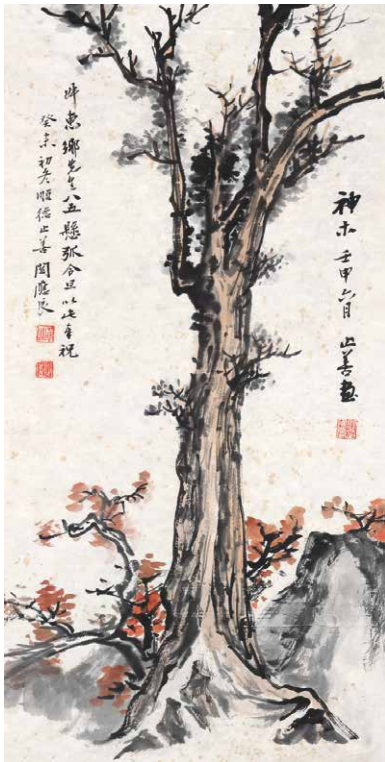 神木 壬申六月 止善畫
惠鄉先生八五懸弧令旦以此奉祝
癸未初冬順德止善關應良